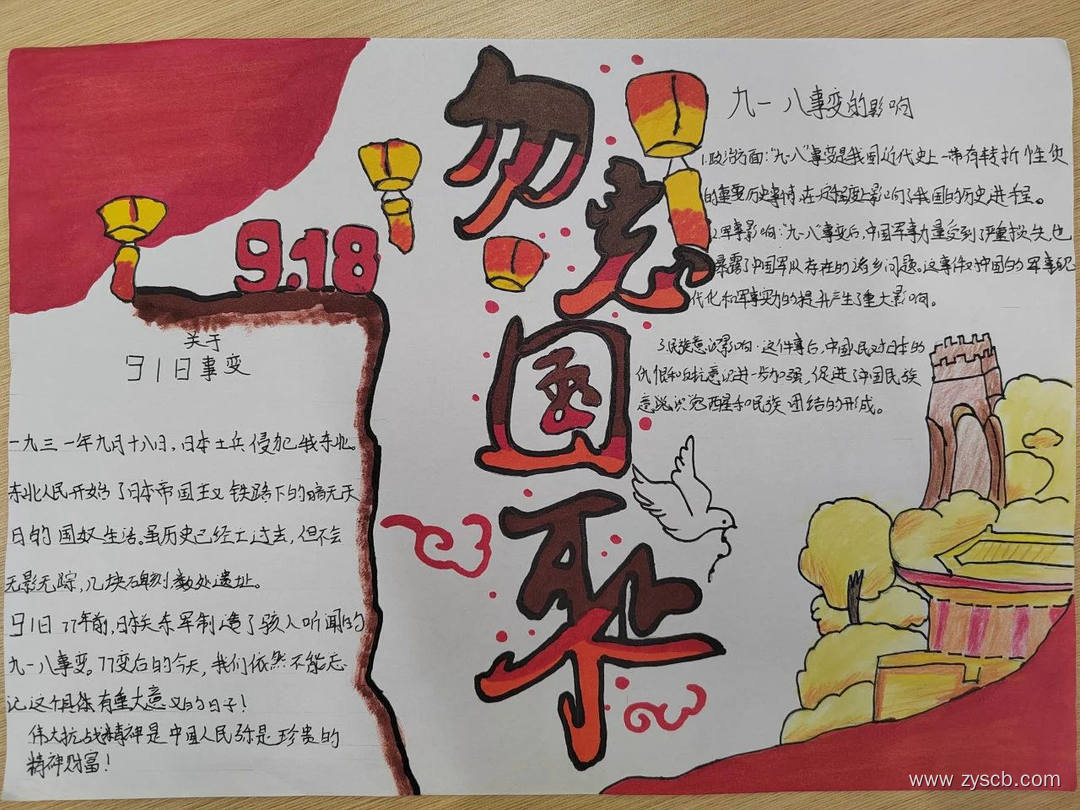 勿忘国耻
9.18
关于
918事变
一九三一年九月十八日,日本士兵侵犯我东北。
东北人民开始了日本帝国主义铁蹄下的暗无天
日的国奴生活。虽历史已经过去,但不会
无影无踪,几块石碑刻数处遗址。
918 77年前,日本关东军制造了骇人听闻的
九一八事变。77变后的今天,我们依然不能忘
记这个具体有重大意义的日子!
伟大抗战精神是中国人民弥足珍贵的
精神财富!
九一八事变的影响
1.政治方面:“九·八”事变是我国近代史上一带有转折性质
的重要历史事情,在一定程度上影响了我国的历史进程。
2.军事影响:九一八事变后,中国军事力量受到严重损失也
暴露了中国军队存在的诸多问题。这事件对中国的军事现
代化和军事实力的提升产生了重大影响。
3.民族意识影响:这件事后,中国人民对日本的
仇恨和反抗意识进一步加强,促进了中国民族
意识觉醒和民族团结的形成。
www.zyscb.com